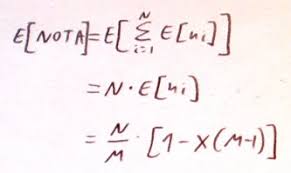 E[NOTA]=E[∑_{i=1}^{N} E[ni]]
=N·E[ni]
=N/M·[1-X(M-1)]